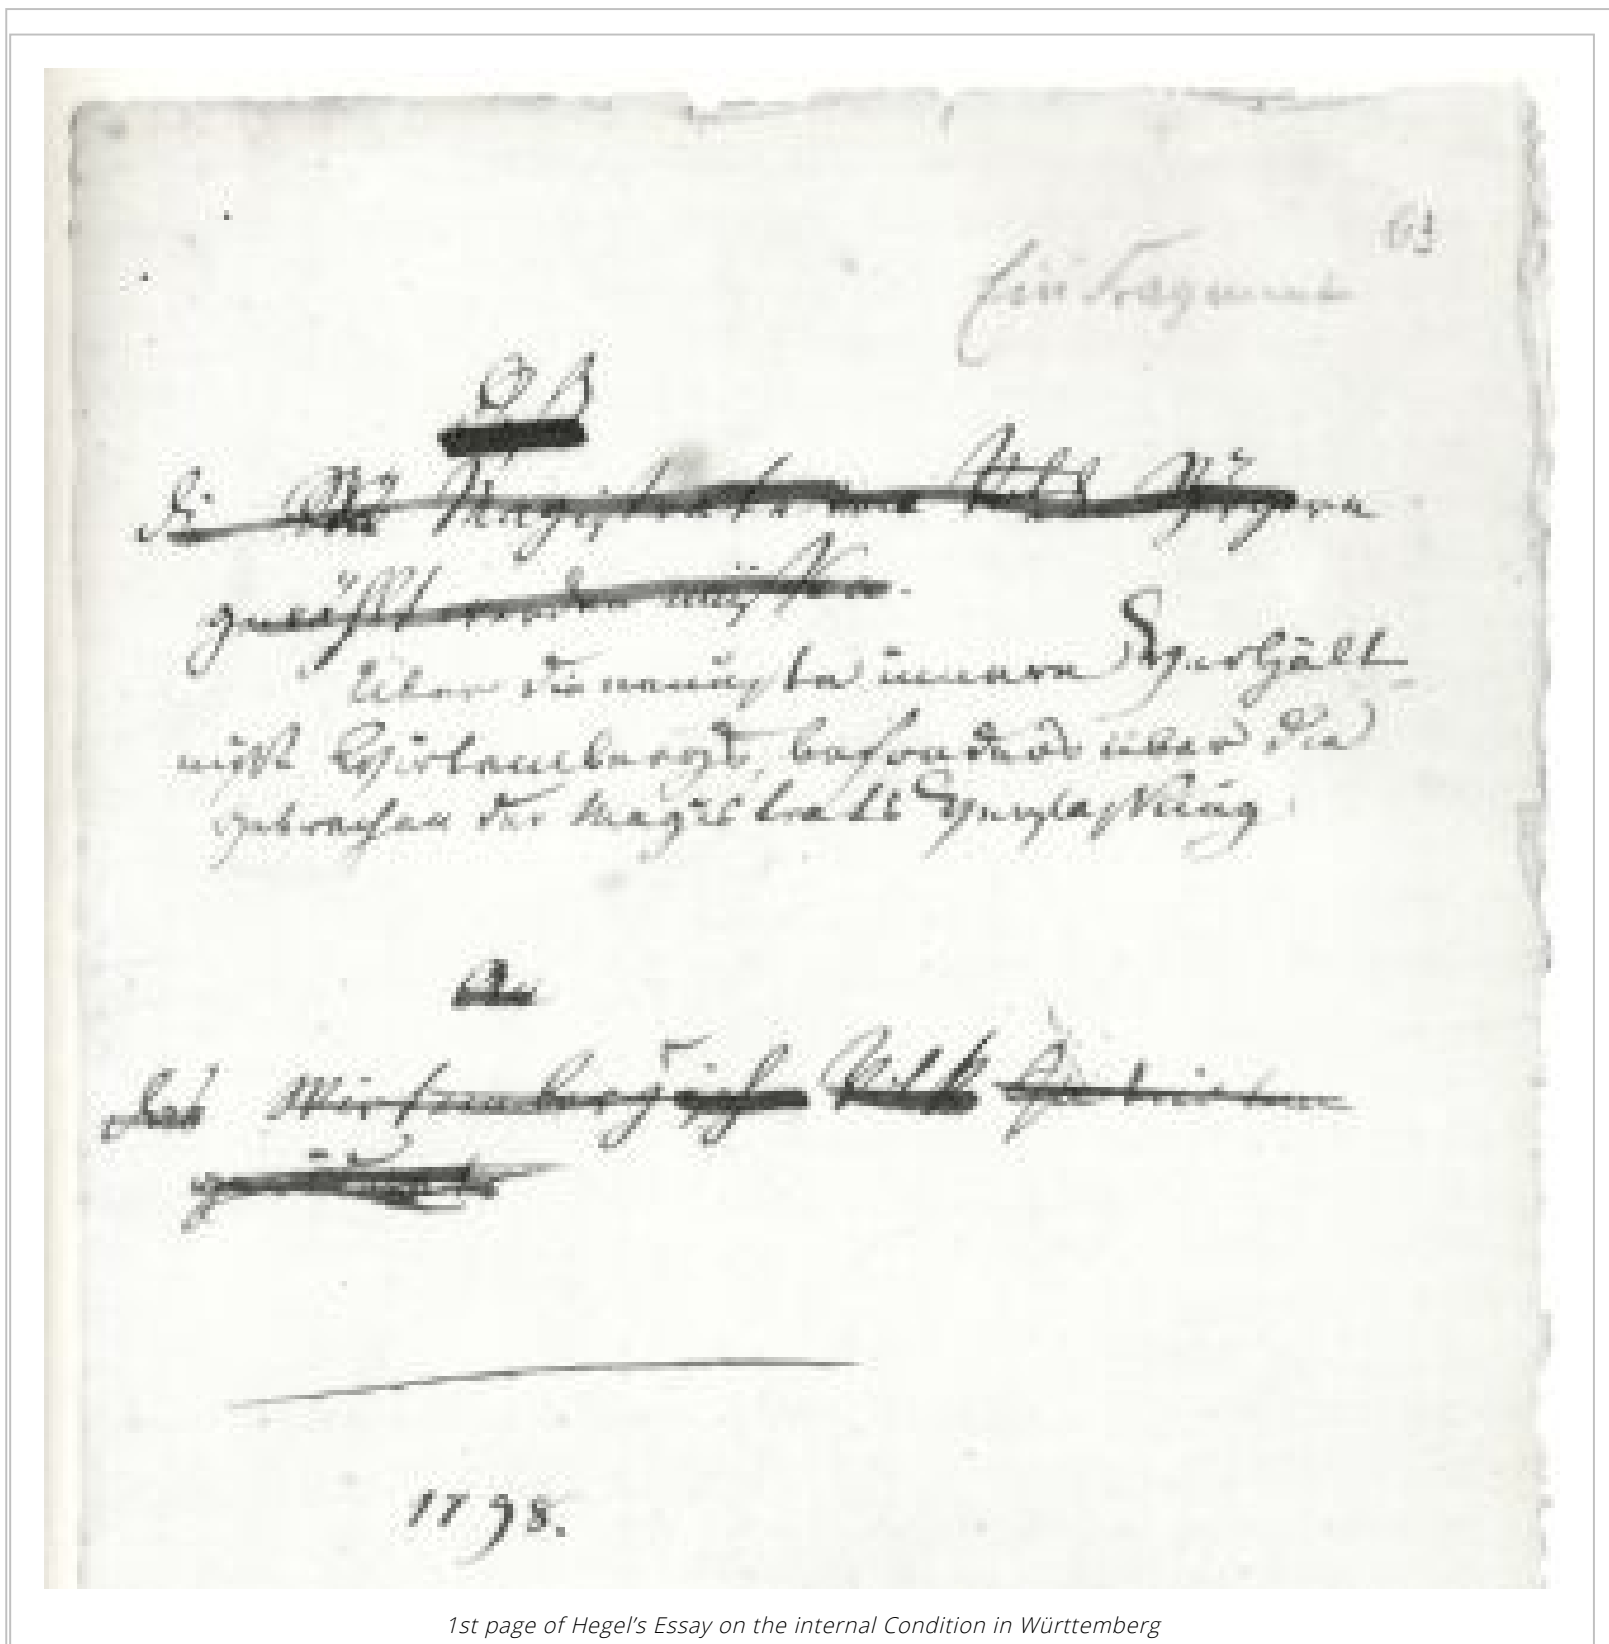 Ein Fragment
die Magistrate Volk Bürgern
gewählt werden müssen.
Über die neuesten innern Verhält-
nisse Wirtembergs, besonders über die
Gebrechen der Magistratsverfassung
An
das Wirtembergische Volk
1798.
1st page of Hegel’s Essay on the internal Condition in Württemberg